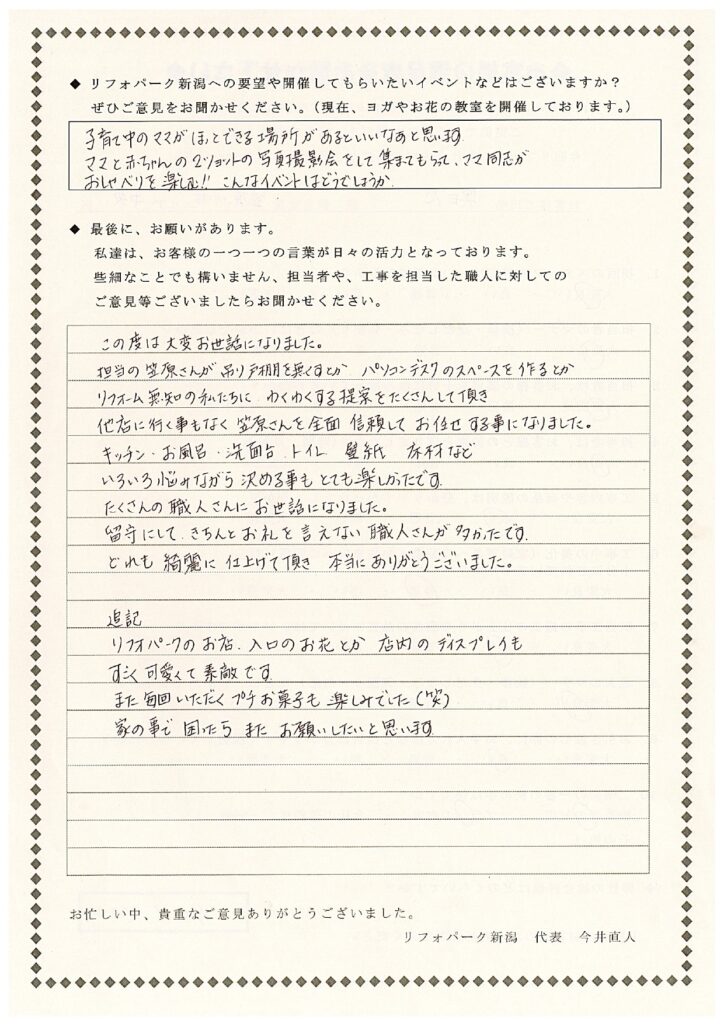 ◆ リフォパーク新潟への要望や開催してもらいたいイベントなどはございますか？
ぜひご意見をお聞かせください。（現在、ヨガやお花の教室を開催しております。）
子育て中のママがほっとできる場所があるといいなあと思います
ママと赤ちゃんの2ショットの写真撮影会をして集まてもらって、ママ同志が
おしゃべりを楽しむ!! こんなイベントはどうでしょうか
◆ 最後に、お願いがあります。
私達は、お客様の一つ一つの言葉が日々の活力となっております。
些細なことでも構いません、担当者や、工事を担当した職人に対しての
ご意見等ございましたらお聞かせください。
この度は大変お世話になりました。
担当の笠原さんが 吊り戸棚を無くすとか パソコンデスクのスペースを作るとか
リフォーム無知の私たちに わくわくする提案をたくさんして頂き
他店に行く事もなく 笠原さんを全面 信頼して お任せする事になりました。
キッチン・お風呂・洗面台 トイレ 壁紙 床材など
いろいろ悩みながら 決める事も とても楽しかったです
たくさんの職人さんに お世話になりました。
留守にして きちんとお礼を言えない職人さんが多かったです
どれも 綺麗に 仕上げて頂き 本当にありがとうございました。
追記
リフォパークのお店、入口のお花とか 店内のディスプレイも
すごく可愛くて素敵です
また毎回いただくプチお菓子も楽しみでした（笑）
家の事で 困ったら また お願いしたいと思います
お忙しい中、貴重なご意見ありがとうございました。
リフォパーク新潟 代表 今井直人